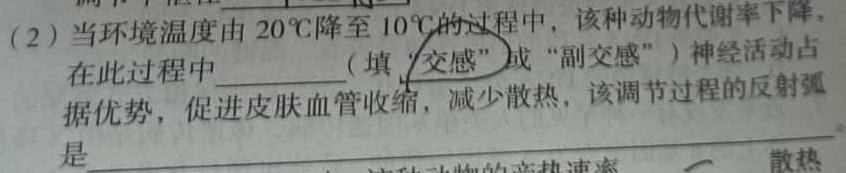 （2）当环境温度由20℃降至10℃的过程中，该种动物代谢率下降，
在此过程中________（填“交感”或“副交感”）神经活动占
据优势，促进皮肤血管收缩，减少散热，该调节过程的反射弧
是________。
散热